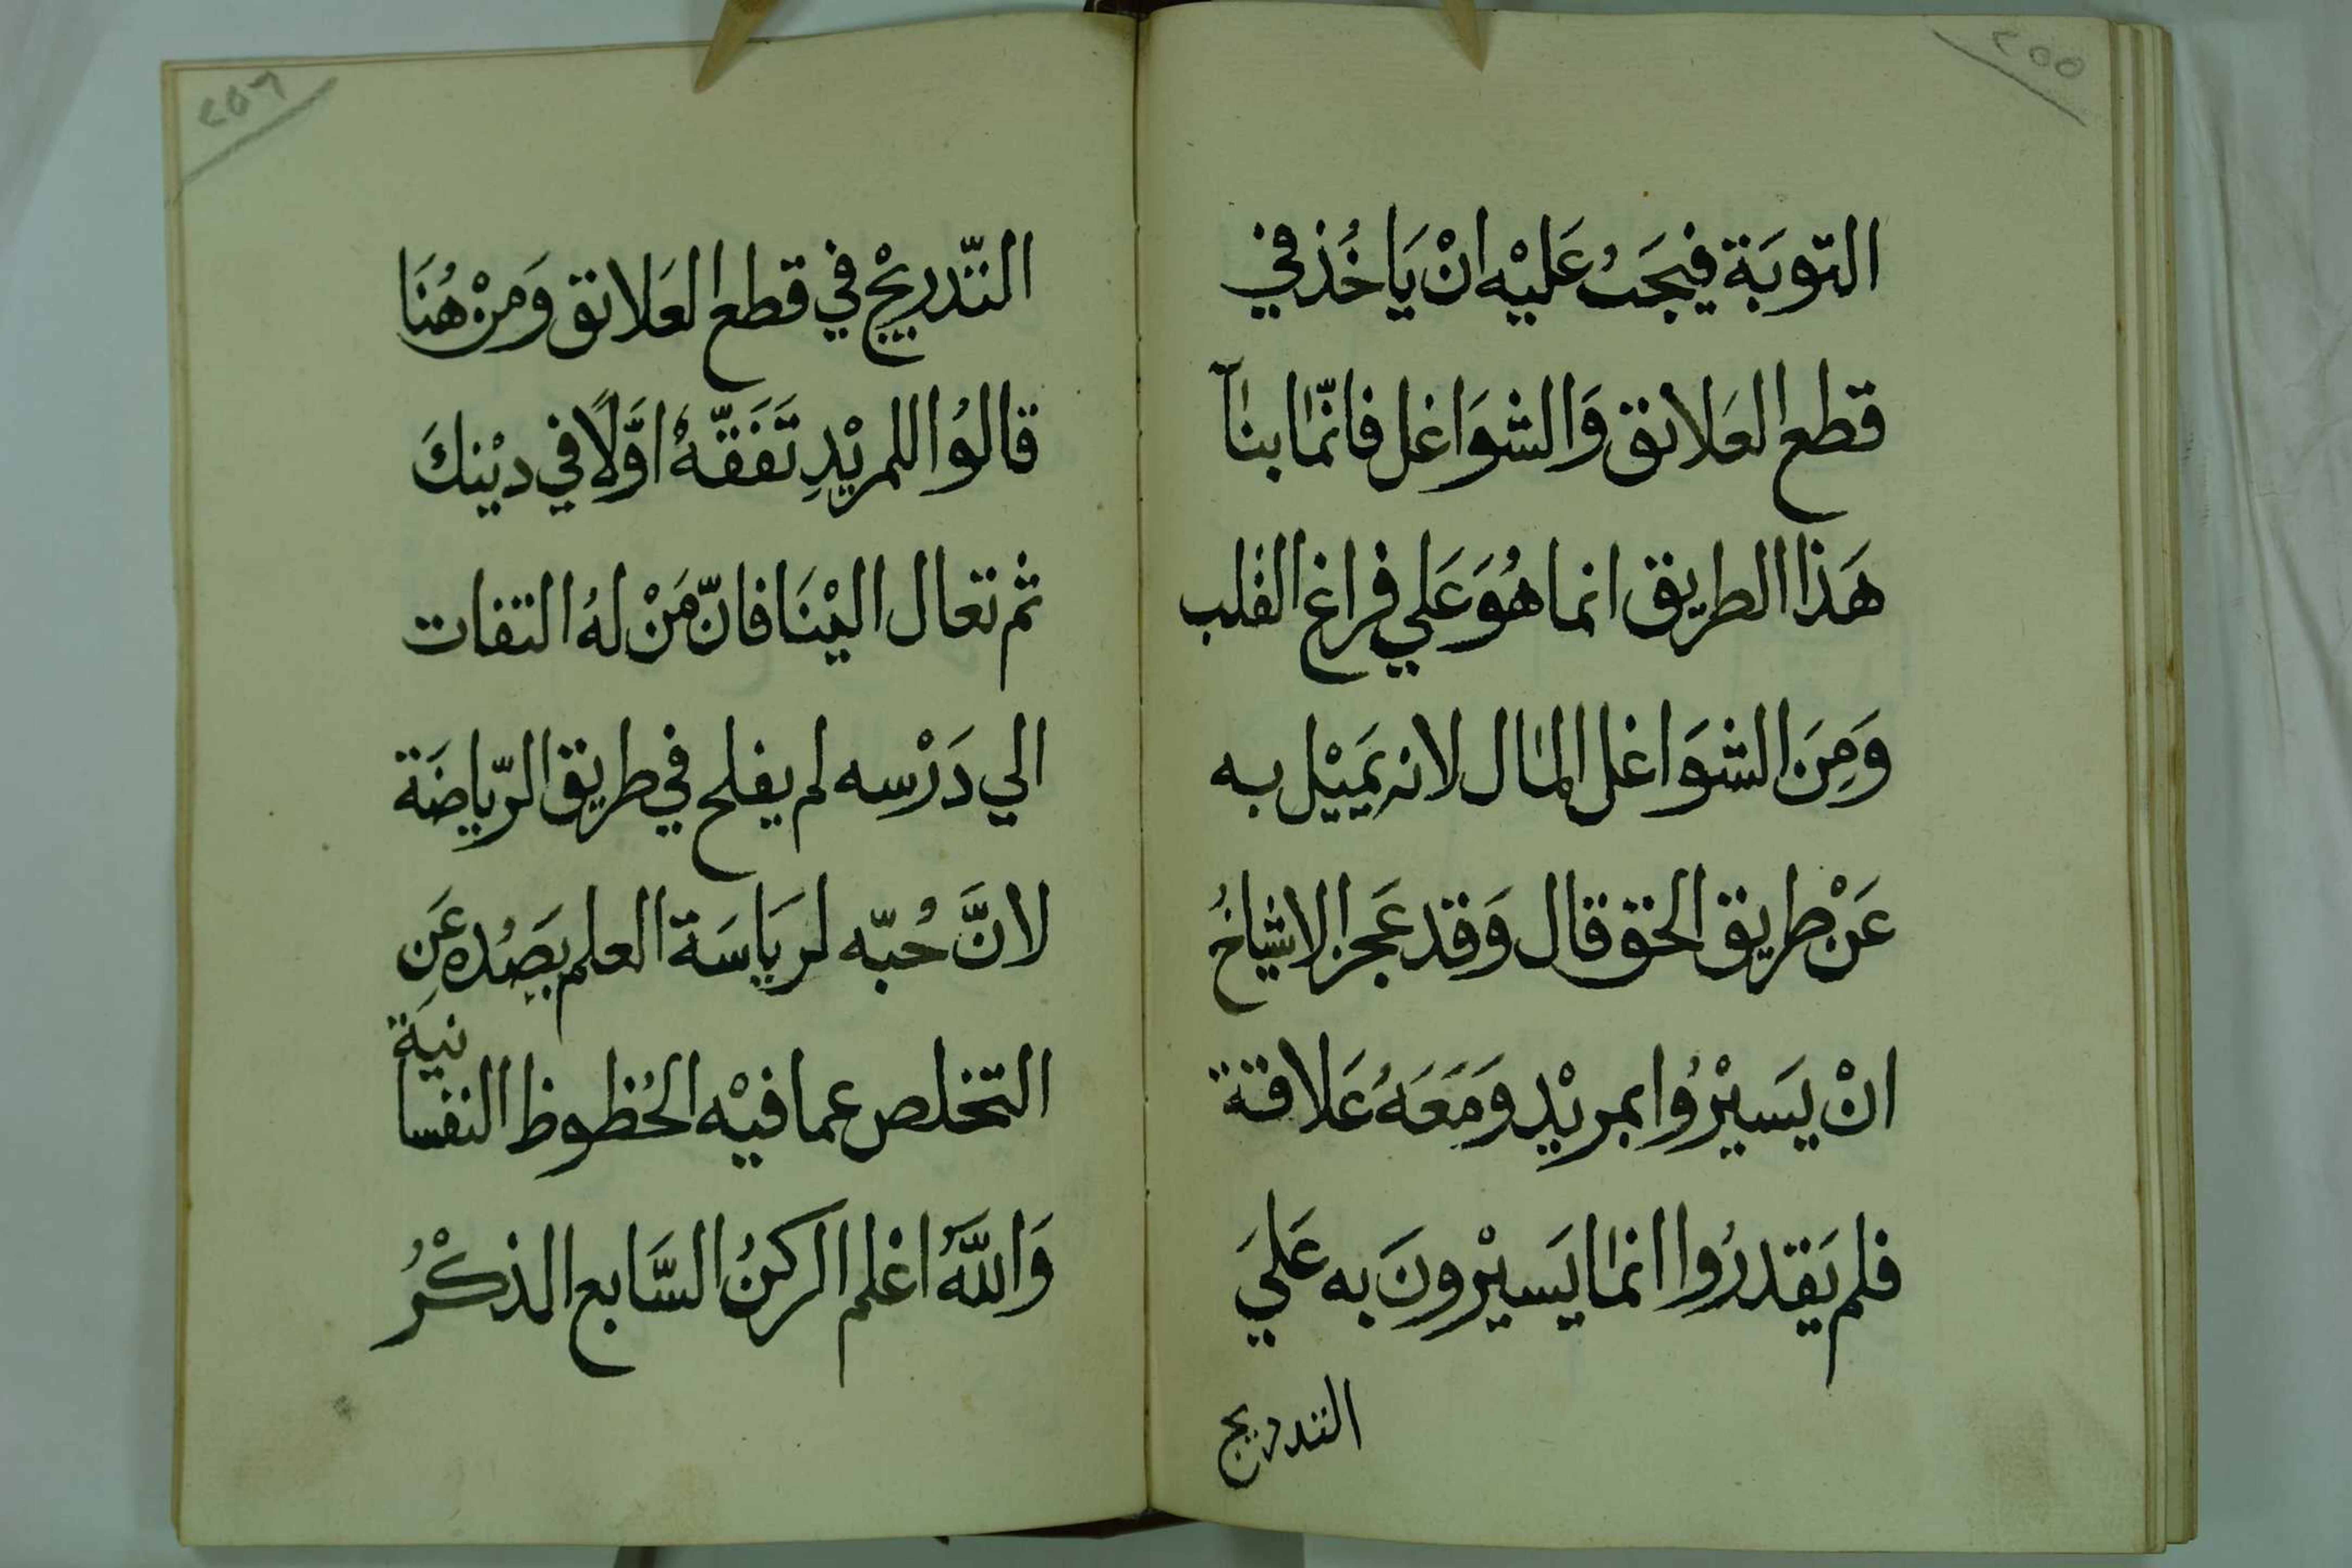 ٢٥٥
التوبَة فيجَبُ عَليْه انْ يَاخُذ في
قطع العَلائق وَالشوَاغل فانّما بنآ
هَذا الطريق انما هُوَ عَلي فراغ القلب
وَمِنَ الشوَاغل المال لانه يَميْل به
عَنْ طريق الحق قال وَقد عَجز الاشياخُ
انْ يَسيْرُوا بمريْد وَمَعَهُ عَلاقة
فلم يَقدرُوا انما يَسيْرونَ به عَليَ
التدريج
٢٥٦
التّدريْج في قطع العَلائق وَمنْ هُنَا
قالوُا للمريْدِ تَفَقّهْ اوَّلًا في ديْنكَ
ثم تعال اليْنَا فانّ مَنْ لهُ التفات
الي دَرْسه لم يفلح في طريق الرّياضَة
لانَّ حُبّه لرِيَاسَة العلم يصَُده عَنِ
التخلص عما فيْه الحُظوظ النفسانيَة
وَاللَّهُ اعْلم الركنُ السَّابع الذكْرُ